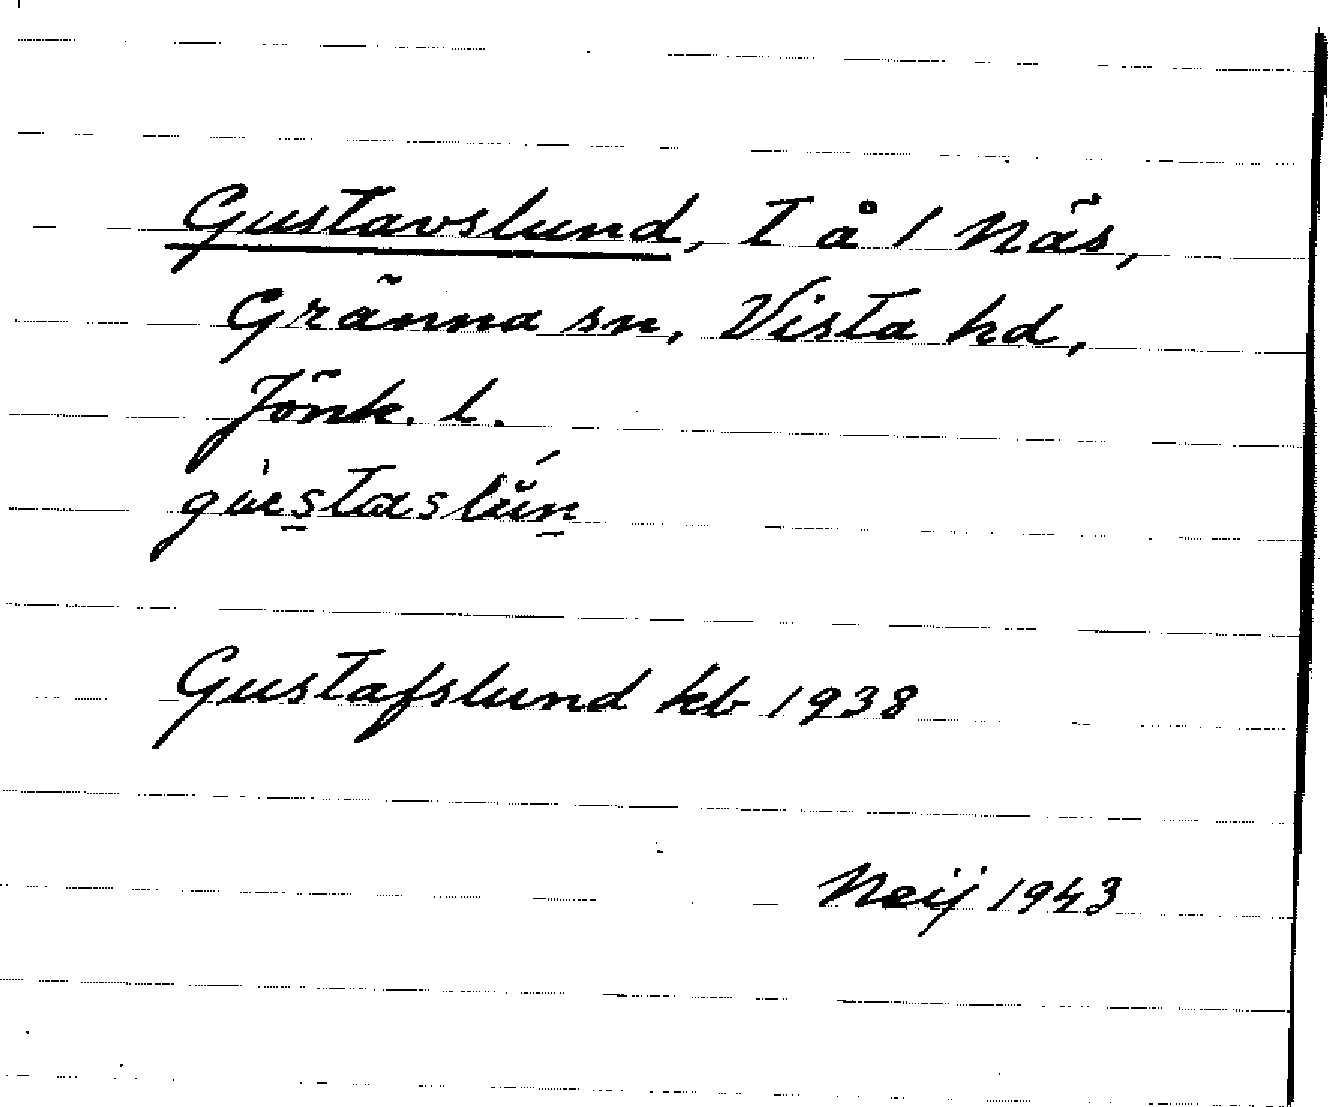 Gustavslund, T å 1 Näs,
Gränna sn, Vista hd,
Jönk. l.
Gustafslund kb 1938
Neij 1943